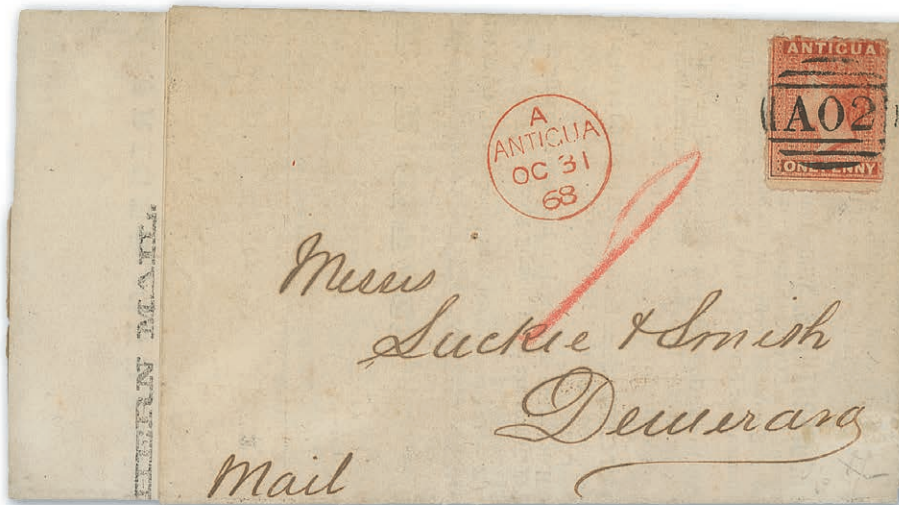 ANTIGUA
A02
ONE PENNY
A
ANTIGUA
OC 31
68
1
Messrs
Luckie & Smith
Demerara
Mail